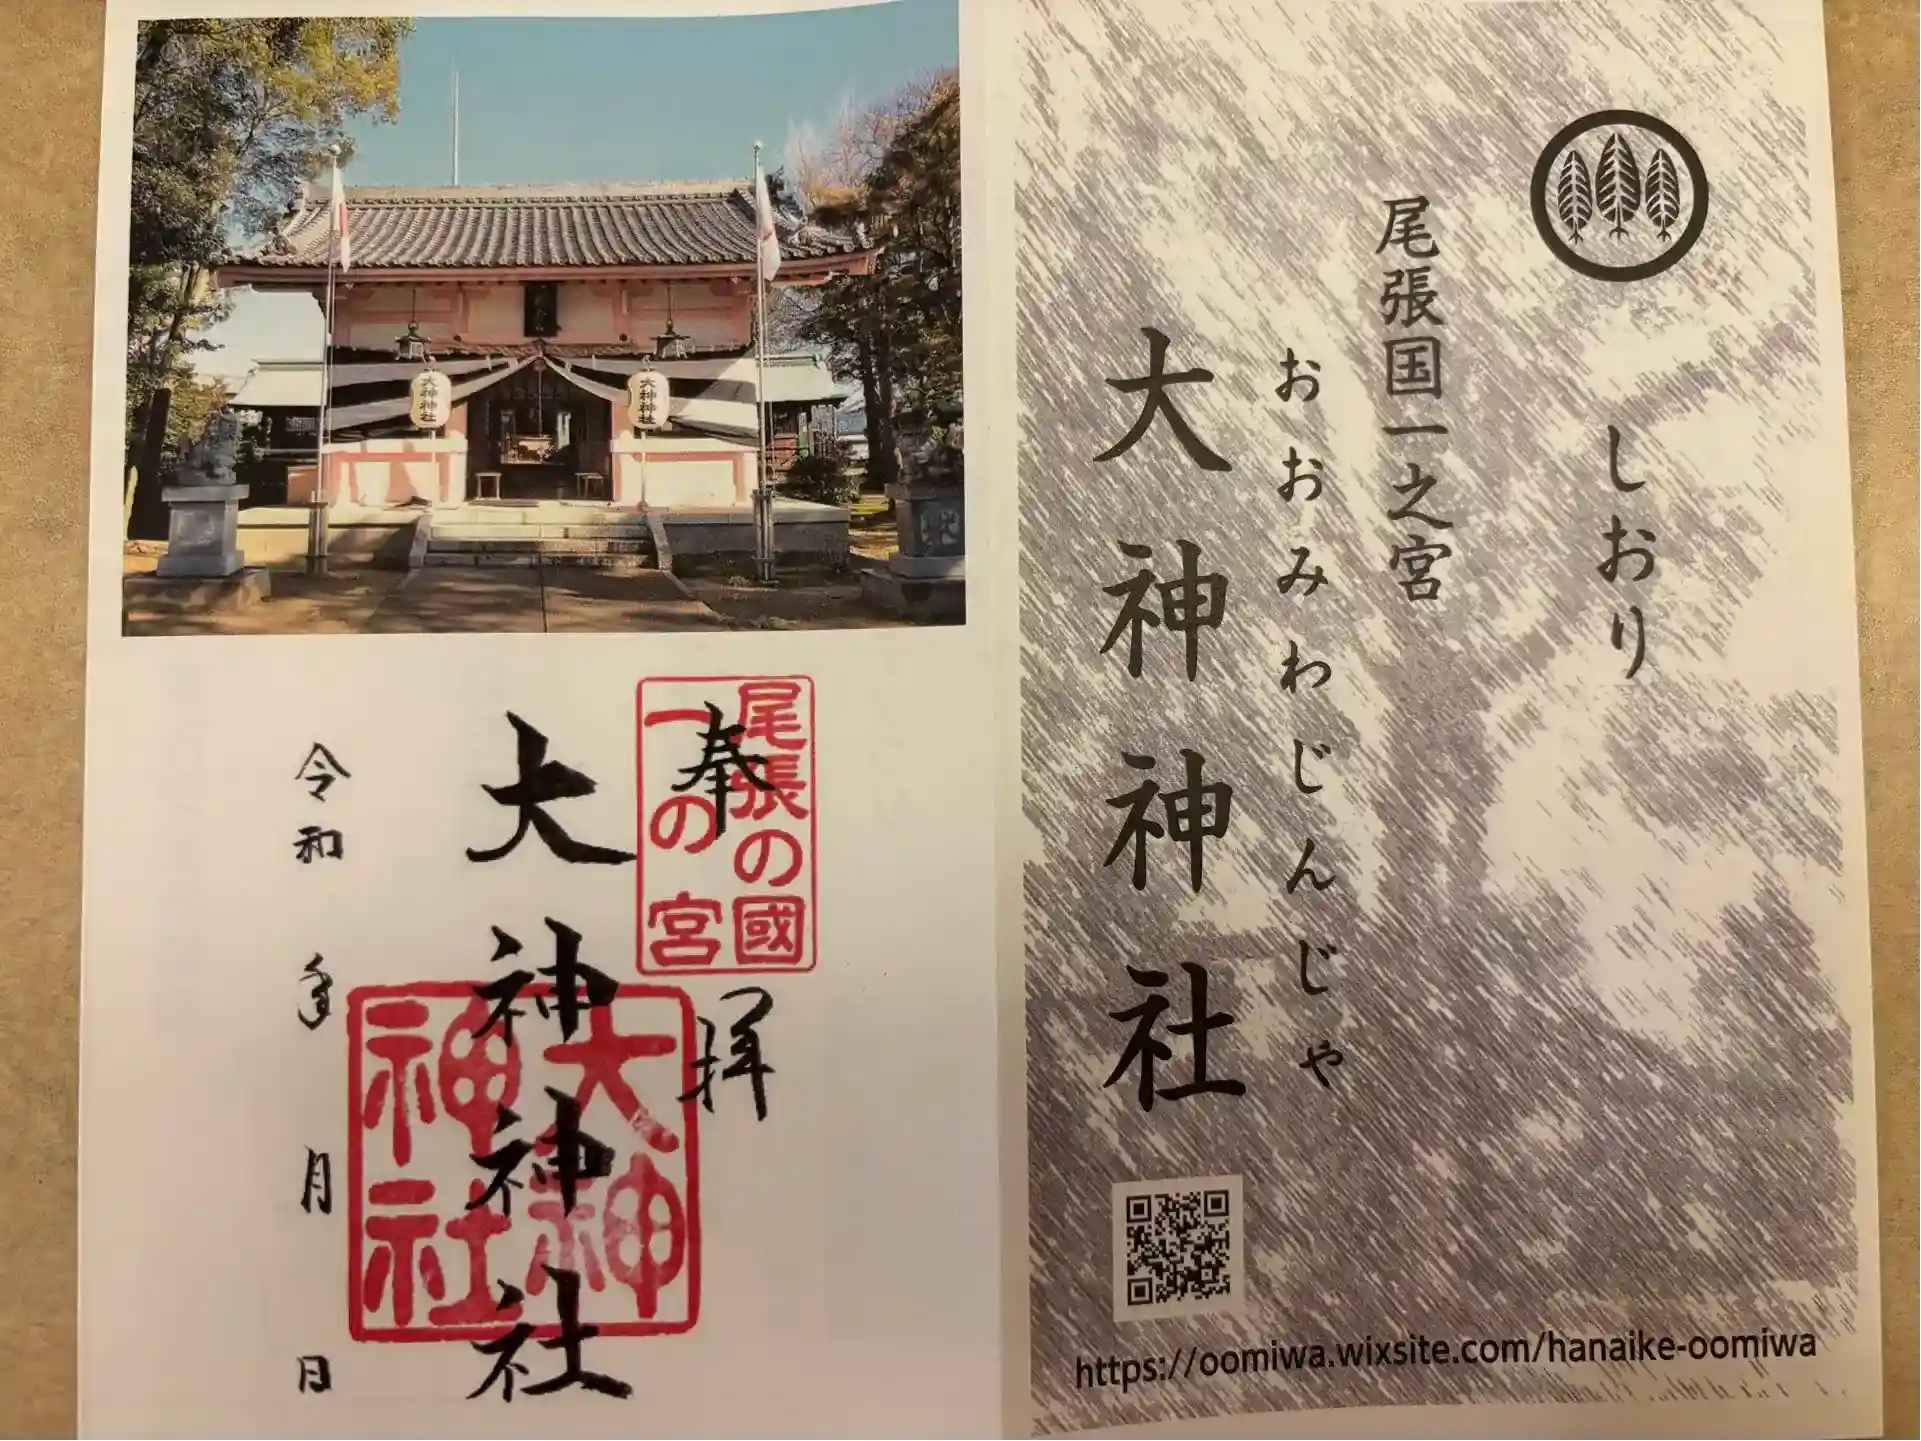 しおり
尾張国一之宮
おおみわじんじゃ
大神神社
https://oomiwa.wixsite.com/hanaike-oomiwa
大神神社
大神神社
尾張の國
一の宮
奉拝
大神神社
大神
神社
令和 年 月 日